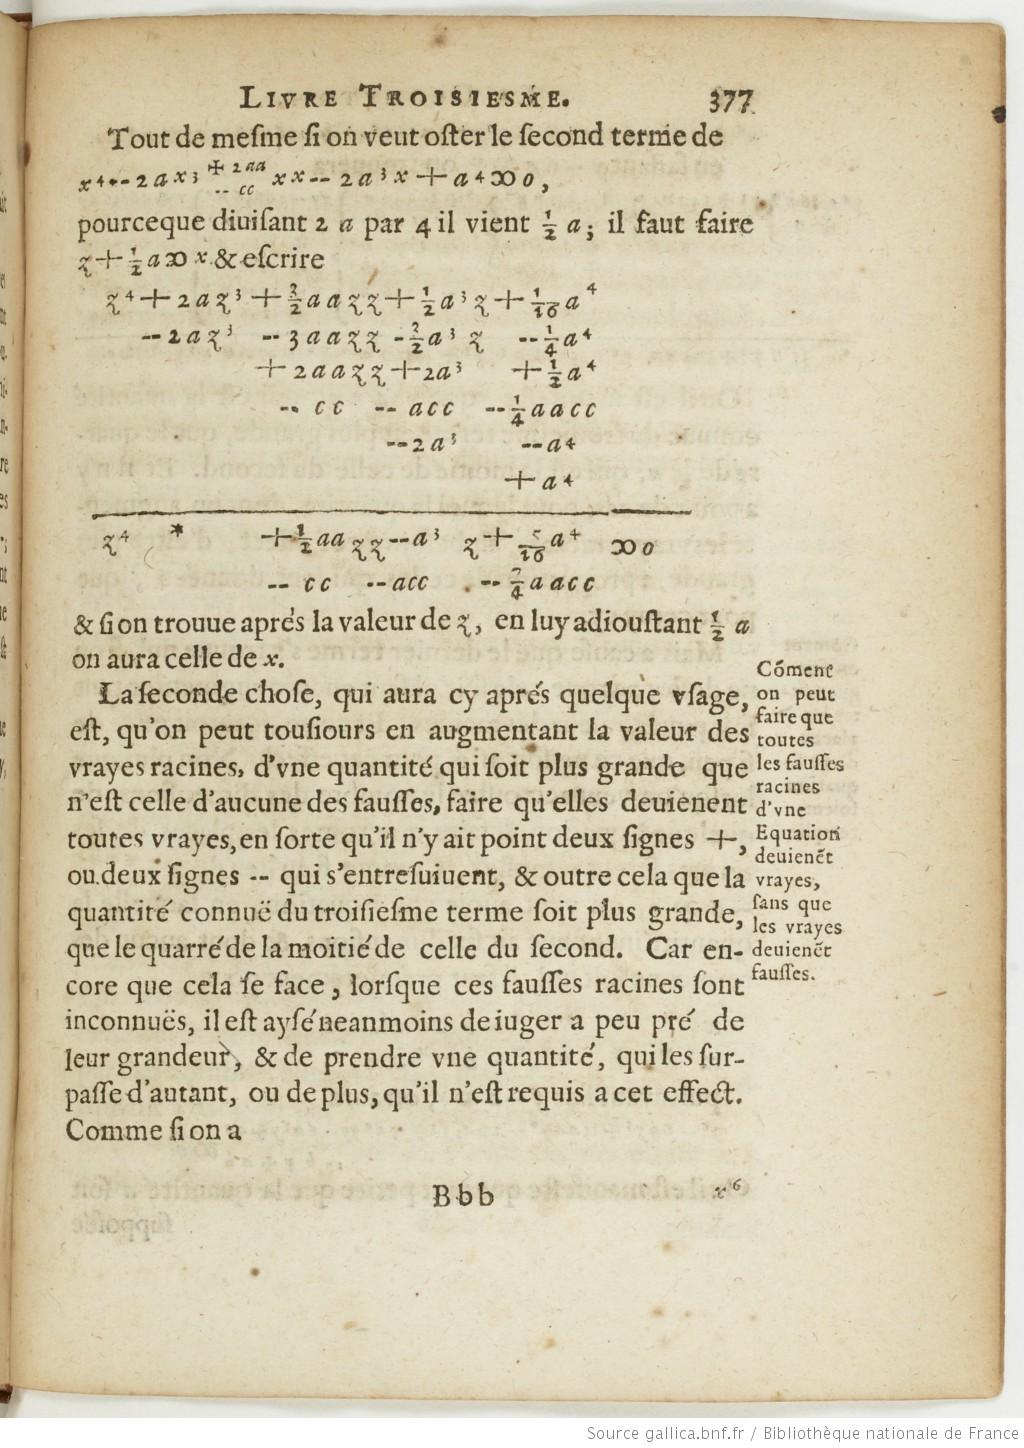 LIVRE TROISIESME. 377
Tout de mesme si on veut oster le second terme de
x⁴ -- 2 a x³ + 2 aa x x -- 2 a³ x + a⁴ ꝏ 0,
-- cc
pourceque diuisant 2 a par 4 il vient ½ a; il faut faire
z + ½ a ꝏ x & escrire
z⁴ + 2 a z³ + 3/2 a a z z + ½ a³ z + 1/16 a⁴
-- 2 a z³ -- 3 a a z z - 3/2 a³ z -- ¼ a⁴
+ 2 a a z z + 2 a³ + ½ a⁴
-- cc -- acc -- ¼ a a c c
-- 2 a³ -- a⁴
+ a⁴
z⁴ * + ½ aa z z -- a³ z + 5/16 a⁴ ꝏ 0
-- cc -- acc -- ¼ a a c c
& si on trouue aprés la valeur de z, en luy adioustant ½ a
on aura celle de x.
La seconde chose, qui aura cy aprés quelque vsage,
est, qu'on peut tousiours en augmentant la valeur des
vrayes racines, d'vne quantité qui soit plus grande que
n'est celle d'aucune des fausses, faire qu'elles deuienent
toutes vrayes, en sorte qu'il n'y ait point deux signes +,
ou deux signes -- qui s'entresuiuent, & outre cela que la
quantité connuë du troisiesme terme soit plus grande,
que le quarré de la moitié de celle du second. Car en-
core que cela se face, lorsque ces fausses racines sont
inconnuës, il est aysé neanmoins de iuger a peu pré de
leur grandeur, & de prendre vne quantité, qui les sur-
passe d'autant, ou de plus, qu'il n'est requis a cet effect.
Comme si on a
Cōment
on peut
faire que
toutes
les fausses
racines
d'vne
Equation
deuienēt
vrayes,
sans que
les vrayes
deuienēt
fausses.
Bbb x⁶
Source gallica.bnf.fr / Bibliothèque nationale de France